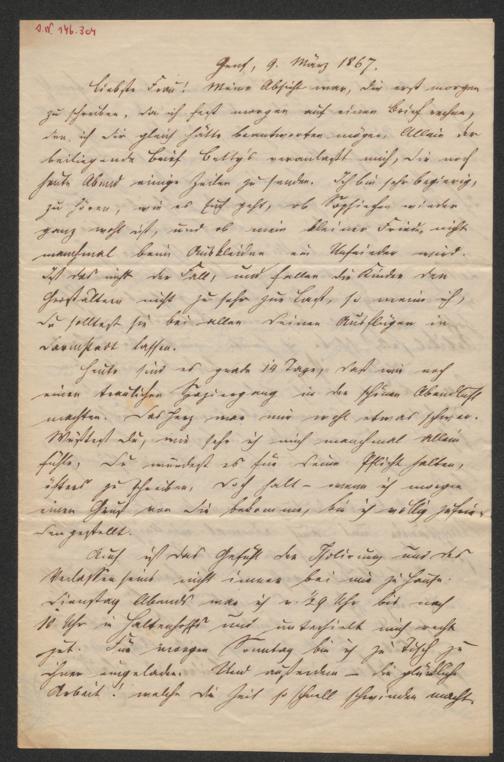 Genf, 9. März 1867.
Liebste Frau! Meine Absicht war, Dir erst morgen
zu schreiben, da ich fest morgen auf einen Brief rechne,
den ich Dir gleich hätte beantworten mögen. Allein der
beiliegende Brief Bettys veranlaßt mich, Dir noch
heute Abend einige Zeilen zu senden. Ich bin sehr begierig,
zu hören, wie es Euch geht, ob Sophiechen wieder
ganz wohl ist, und ob mein kleiner Friede, nicht
manchmal beim Auskleiden ein Unfrieder wird.
Ist das nicht der Fall, und fallen die Kinder den
Großeltern nicht zu sehr zur Last, so meine ich,
Du solltest sie bei allen Deinen Ausflügen in
Darmstadt lassen.
Heute sind es grade 14 Tage, daß wir noch
einen traulichen Spaziergang in der schönen Abendluft
machten. Das Herz war mir wohl etwas schwer.
Wüßtest Du, wie sehr ich mich manchmal allein
fühle, Du würdest es für Deine Pflicht halten,
öfters zu schreiben, doch halt – wenn ich morgen
einen Gruß von Dir bekomme, bin ich völlig zufrie-
dengestellt.
Auch ist das Gefühl der Isolirung und des
Verlassenseins nicht immer bei mir zu Hause.
Dienstag Abends war ich v. ½9 Uhr bis nach
10 Uhr in und unterhielt mich recht
gut. Für morgen Sonntag bin ich zu Tisch zu
ihnen eingeladen. Und außerdem – die glückliche
Arbeit! welche die Zeit so schnell schwinden macht